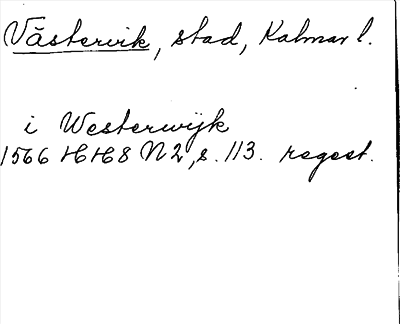 Västervik, stad, Kalmar l.
i Westerwijk
1566 HH8 N2, s. 113. regest.